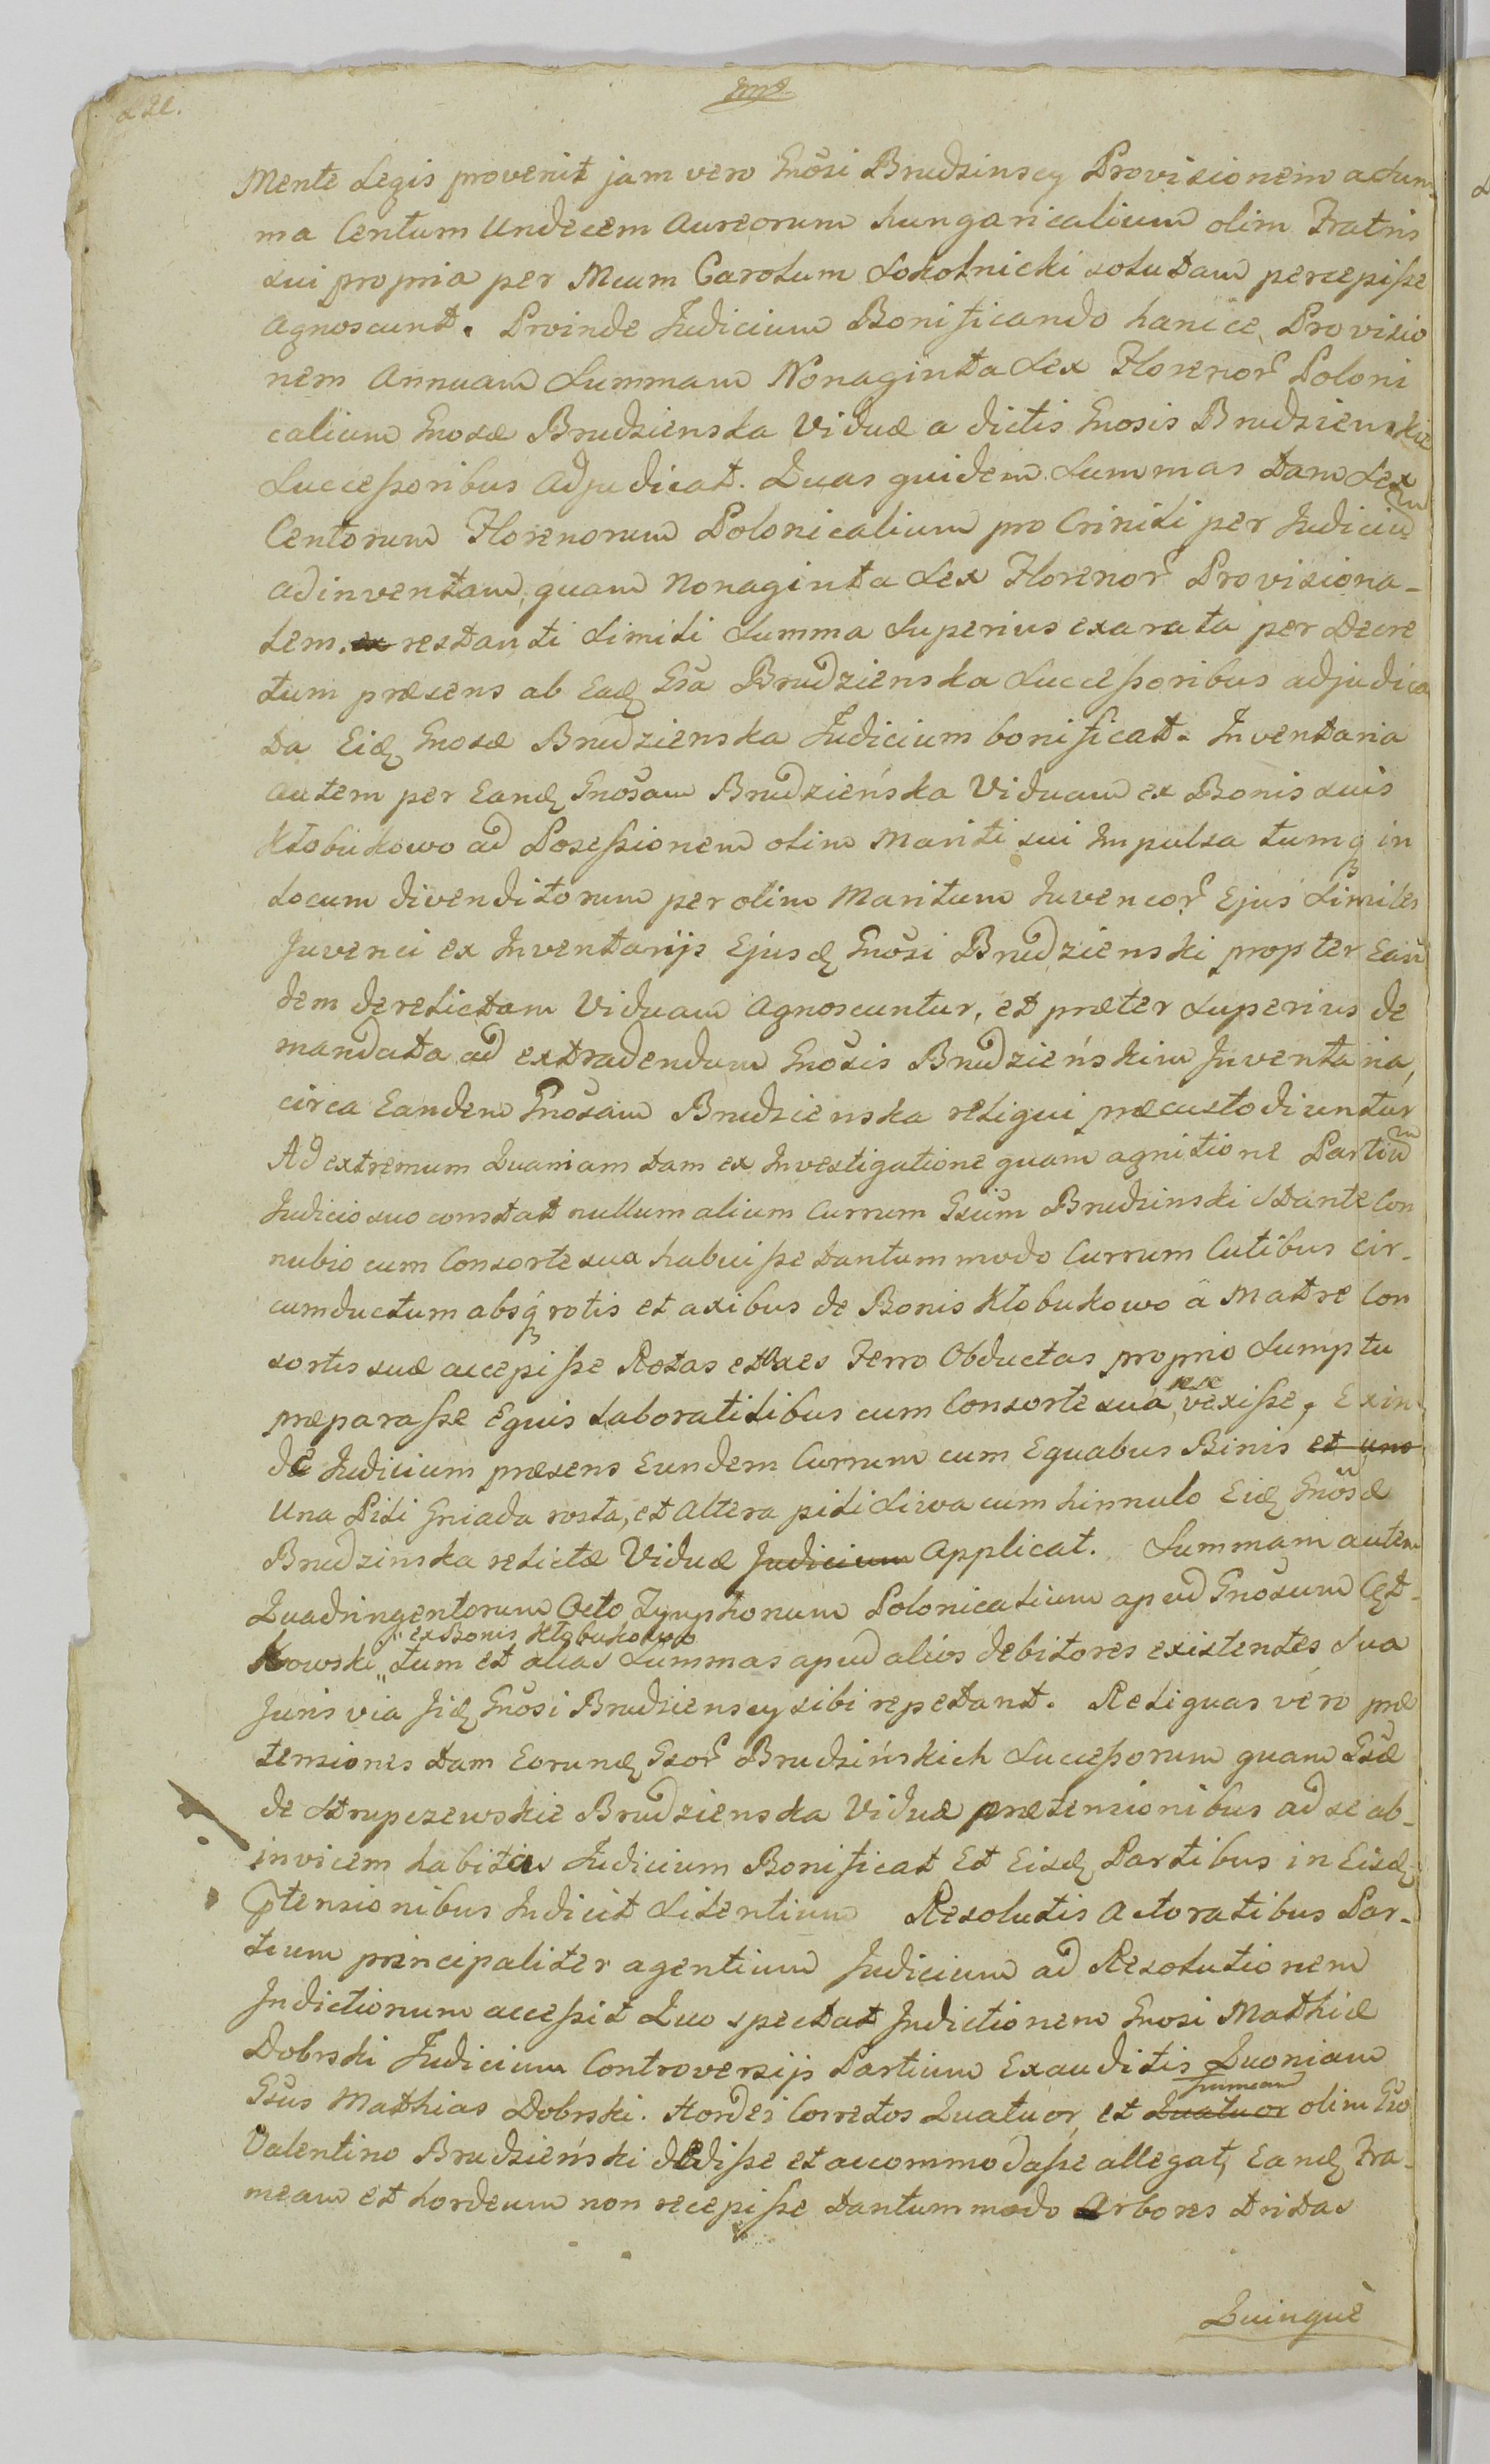 Mente Legis provenit jam vero Gnösi Brudzinscy Provisionem a Sum-
ma Centum Undecem Aureorum hungaricalium olim Fratris
sui propria per Mcum Carolum Sokolnicki solutam percepisse
Agnoscunt. Proinde Judicium Bonificando hancce Provisio
nem Annuam Summam Nonaginta Sex Florenor̃ Poloni
calium Gnosæ Brudzienska Viduæ a dictis Gnosis Brudzienskie
Successoribus Adjudicat. Quas quidem Summas tam Sex
Centorum Florenorum Polonicalium pro Crinili per Judiciũ
adinventam, quam Nonaginta Sex Florenor̃ Provisiona-
lem, ex restanti simili Summa Superius exarata per Decre
tum præsens ab Eadę Gsa Brudzienska Successoribus adjudica
ta Eidę Gnosæ Brudzienska Judicium bonificat. Inventaria
autem per Eandę Gnosam Brudzieńska Viduam ex Bonis suis
Kłobukowo ad Possessionem olim Mariti sui Impulsa tumq in
Locum divenditorum per olim Maritum Juvencor̃ Ejus Similes
Juvenci ex Inventarijs Ejusdę Gnösi Brudzienski propter Ean
dem derelictam Viduam Agnoscuntur, et præter Superius de
mandata ad extradendum Gnosis Brudzieńskim Inventaria,
circa Eandem Gnosam Brudzienska reliqui præcustodiuntur
Ad extremum Quaniam tam ex Investigatione quam agnitione Partiũ
Judicio suo constat nullum alium Currum Gsum Brudzinski Stante Con
nubio cum Consorte sua habuisse tantummodo Currum Cutibus cir-
cumductum absq rotis et axibus de Bonis Kłobukowo â Matre Con
sortis suæ accepisse Rotas et Axes Ferro Obductas proprio Sumptu
præparasse Equis Laboratilibus cum Consorte sua sese vexisse, Exin-
de Judicium præsens Eundem Currum cum Equabus Binis et uno
Una Pili Gniada rosta, et Altera pili Siwa cum hinnulo Eidę Gnösæ
Brudzinska relictæ Viduæ Judicium Applicat. Summam autem
Quadringentorum Octo Tymphonum Polonicalium apud Gnosum Cęt-
kowski ex Bonis Kłobukowo tum et alias Summas apud alios debitores existentes Sua
Juris via Jidę Gnösi Brudzienscy sibi repetant. Reliquas vero præ
tensiones tam Eorundę Gsor̃ Brudzińskich Successorum quam Gsæ
de Strupczewskie Brudzienska Viduæ prætensionibus ad se ab-
invicem habitas Judicium Bonificat Et Eisdę Partibus in Eisdę
Ptensionibus Indicit Silentium Resolutis Actoratibus Par-
tium principaliter agentium Judicium ad Resolutionem
Indictionum accessit Quo spectat Indictionem Gnosi Mathiæ
Dobrski Judicium Controversijs Partium Exauditis Quoniam
Gsus Mathias Dobrski Hordei Corretos Quatuor, et Quatuor frameam olim Gso
Valentino Brudzieński dedisse et accommodasse allegat, Eandę Fra-
meam et hordeum non recepisse tantummodo Arbores tritas
Quinque